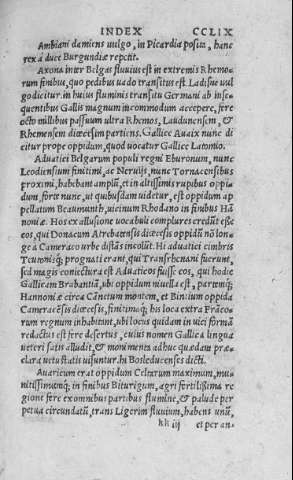 INDEX CCLIX
Ambiani damiens uulgo, in Picardia posita, hanc
rex à duce Burgundiæ repetit.
Axona inter Belgas fluuius est in extremis Rhemo-
rum finibus, quo pedibus uado transitus est. Ladisne uul
go dicitur. in huius fluminis transitu Germani ab inse-
quentibus Gallis magnum incommodum accepere, fere
octo millibus passuum ultra Rhemos, Laudunensem, &
Rhemensem diœcesim partiens. Gallice Auaix nunc di
citur prope oppidum, quod uocatur Gallice
Aduatici Belgarum populi regni Eburonum, nunc
Leodiensium finitimi, ac Neruijs, nunc Tornacensibus
proximi, habebant amplũ, et in altissimis rupibus oppi-
dum, forte nunc, ut quibusdam uidetur, est oppidum ap
pellatum Beaumonth, uicinum Rhodano in finibus Hã
noniæ. Hos ex allusione uocabuli complures credũt esse
eos, qui Donacum Atrebatẽsis diœcesis oppidũ nõ lon-
ge à Cameraco urbe distãs incolũt. Hi aduatici cimbris
Teutonisq́; prognati erant, qui Transrhenani fuerunt,
sed magis coniectura est Aduaticos fuisse eos, qui hodie
Gallicam Brabantiã, ubi oppidum niuella est, partemq́;
Hannoniæ circa Cãnetum montem, et Bincium oppida
Cameracẽsis diœcesis, finitimaq́; his loca extra Præco-
rum regnum inhabitant, ubi locus quidam in uici formã
redactus est fere desertus, cuius nomen Gallica lingua
ueteri satis alludit, & monimenta adhuc quædam præ-
clara uetustatis uisuntur. hi Bosleducenses dicti.
Auaricum erat oppidum Celtarum maximum, mu-
nitissimumq́; in finibus Biturigum, agri fertilissima re
gione fere ex omnibus partibus flumine, & palude per
petua circundatũ, trans Ligerim fluuium, habens unũ,
kk iij et per an-